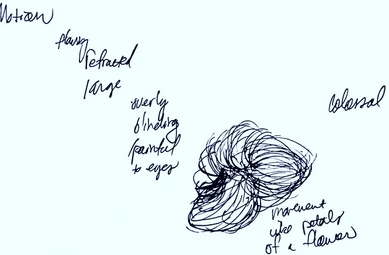 Motion
Refracted
large
overly
blinding
painful
to eyes
colossal
movement
like petals
of a flower